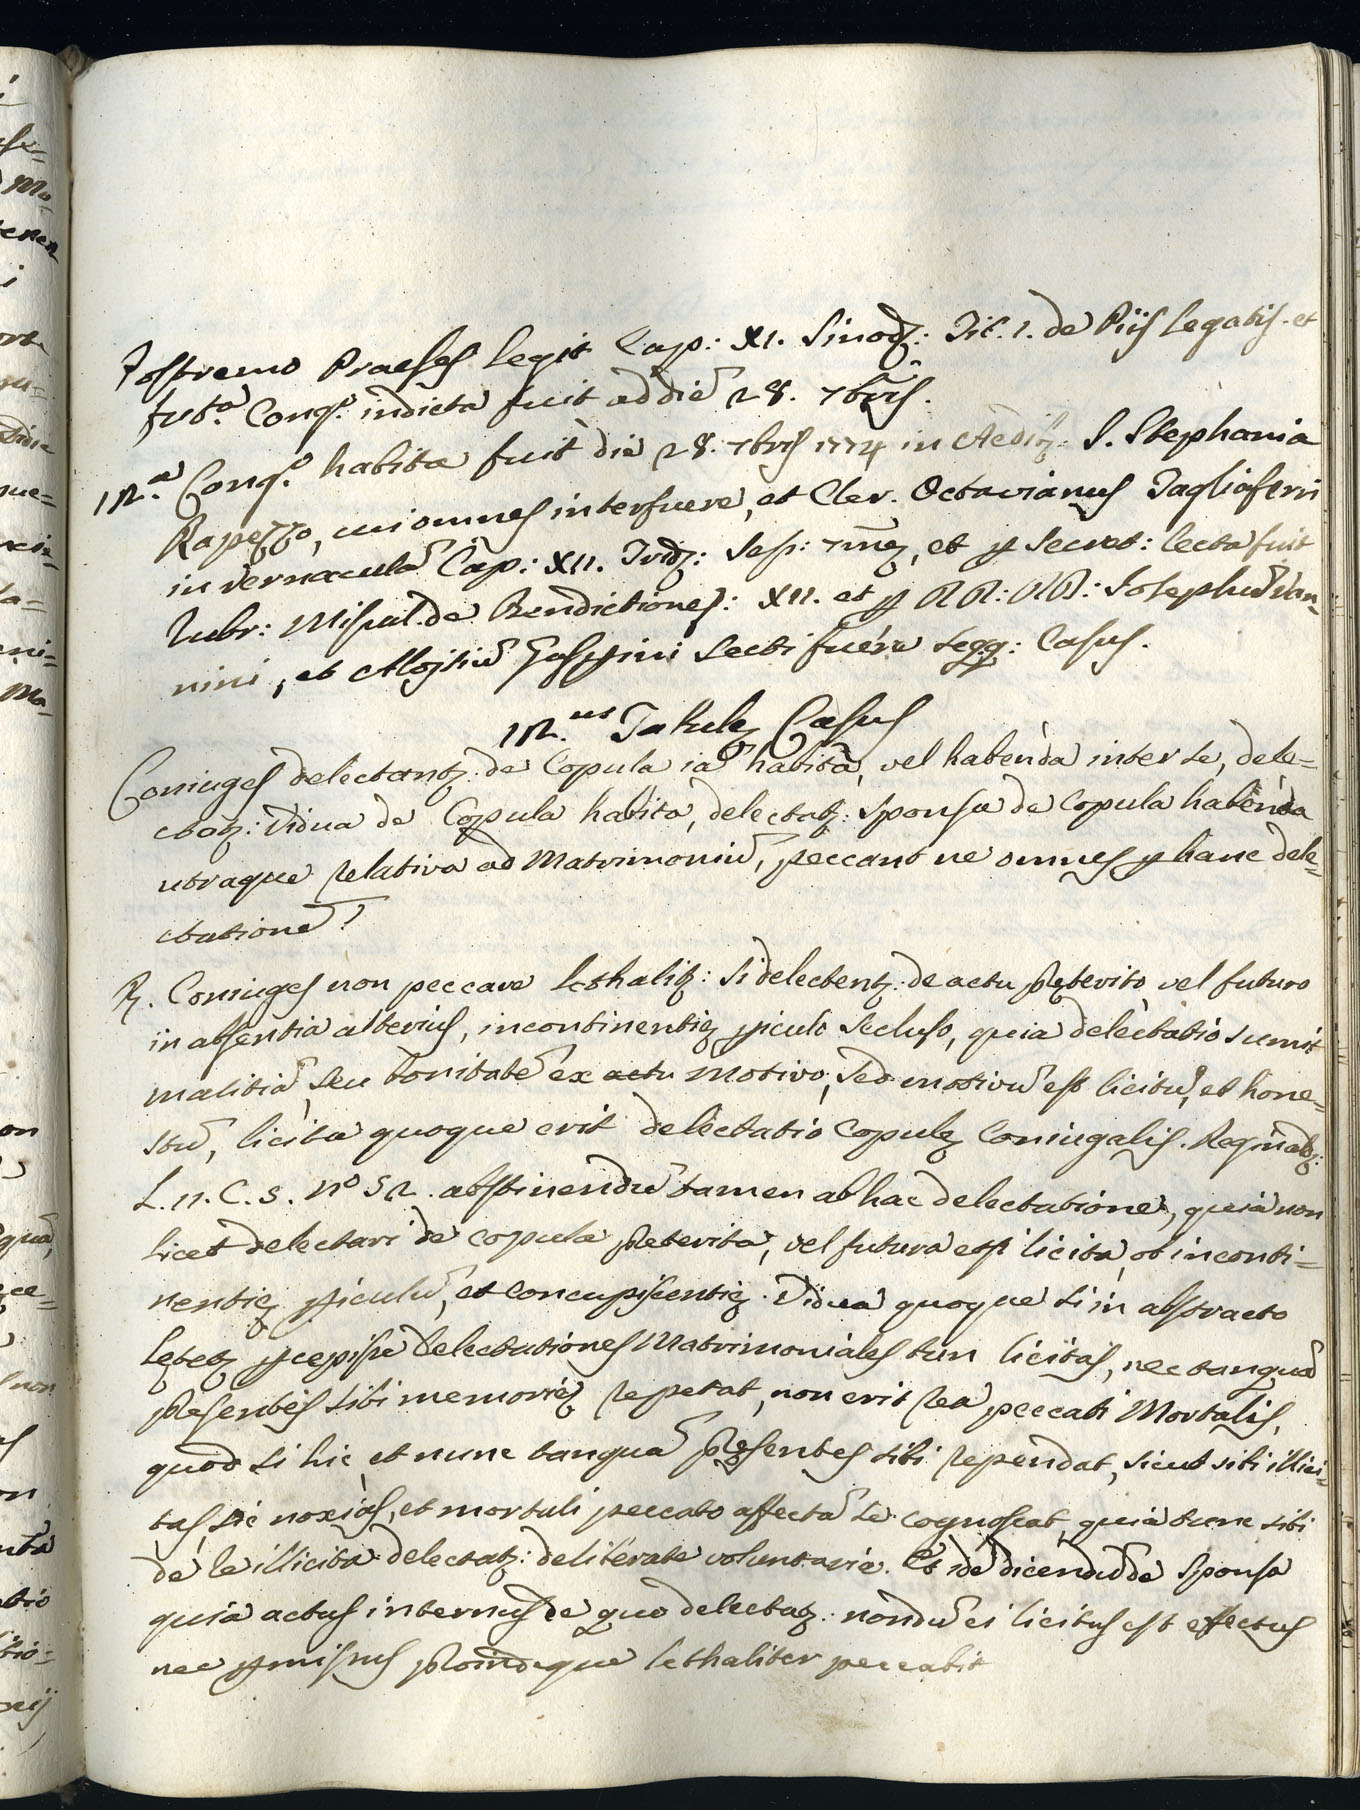 Postremo Praeses legit Cap: XI. Sinod: Tit. 1. de Piis Legatis. et
fut.a Cong.o indicta fuit ad diē 28. 7bris.
12.a Cong.o habita fuit die 28. 7bris 1774 in Aedib: S. Stephania
Rapezzo, cui omnes interfuere, et Cler. Octavianus Tagliaferri
in vernacula Cap: XII. Iud: Sess: 7mę, et p Secret: lecta fuit
Rubr: Missal. de Bendictiones: XII. et p RR: DD: Iosephū Van=
nini, et Aloisiū Gaspini lecti fuere seqq: Casus.
12.us Tabulę Casus
Coniuges delectantr: de Copula iā habita, vel habenda inter se, dele=
ctatr: Vidua de Copula habita, delectatr: Sponsa de Copula habenda
utraque relativa ad Matrimoniū, peccant ne omnes p hanc dele=
ctationē?
R. Coniuges non peccare lethalitr: si delectentr: de actu pręterito vel futuro
in absentia alterius, incontinentię piculo secluso, quia delectatio sumit
malitiā, seu bonitatē ex actu motivo, sed motivū est licitū, et hone=
stū, licita quoque erit delectatio Copulę Coniugalis. Reginald:
L. 11. C. 5. No 52. abstinendū tamen ab hac delectatione, quia non
licet delectari de copula pręterita, vel futura etsi licita, ob inconti=
nentię piculū, et concupiscentię. Vidua quoque si in abstracto
lętetr pcepisse delectationes Matrimoniales tun licitas, nec tanquā
pręsentes sibi memorię repetat, non erit rea peccati Mortalis,
quod si hic, et nunc tanquā pręsentes sibi rependat, sicut sibi illici=
tas sic noxias, et mortali peccato affectā se cognoscat, quia tunc sibi
de re illicita delectatr: deliberate voluntarie. Et idē dicendū de Sponsa
quia actus internus de quo delectatr: nondū ei licitus est effectus
nec pmissus proindeque lethaliter peccabit